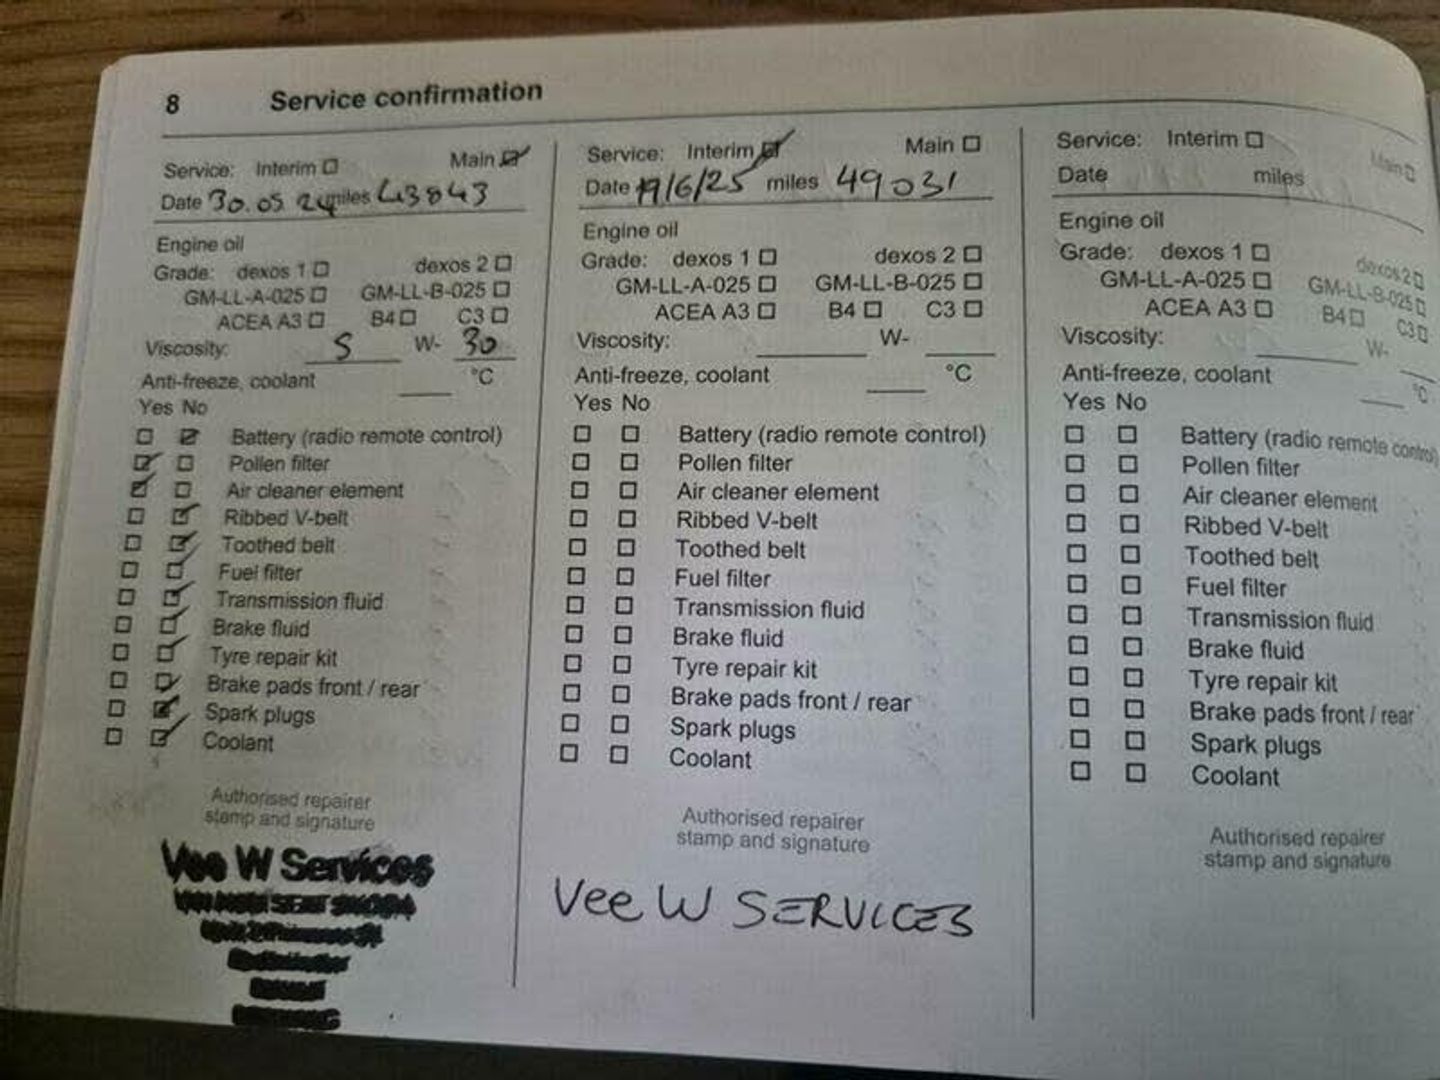 8 Service confirmation
Service: Interim Main
Date 30.05.24 miles 43843
Engine oil
Grade: dexos 1 dexos 2
GM-LL-A-025 GM-LL-B-025
ACEA A3 B4 C3
Viscosity: 5 W- 30
Anti-freeze, coolant °C
Yes No
Battery (radio remote control)
Pollen filter
Air cleaner element
Ribbed V-belt
Toothed belt
Fuel filter
Transmission fluid
Brake fluid
Tyre repair kit
Brake pads front / rear
Spark plugs
Coolant
Authorised repairer
stamp and signature
Vee W Services
Service: Interim Main
Date 19/6/25 miles 49031
Engine oil
Grade: dexos 1 dexos 2
GM-LL-A-025 GM-LL-B-025
ACEA A3 B4 C3
Viscosity: W-
Anti-freeze, coolant °C
Yes No
Battery (radio remote control)
Pollen filter
Air cleaner element
Ribbed V-belt
Toothed belt
Fuel filter
Transmission fluid
Brake fluid
Tyre repair kit
Brake pads front / rear
Spark plugs
Coolant
Authorised repairer
stamp and signature
Vee W SERVICES
Service: Interim Main
Date miles
Engine oil
Grade: dexos 1 dexos 2
GM-LL-A-025 GM-LL-B-025
ACEA A3 B4 C3
Viscosity: W-
Anti-freeze, coolant °C
Yes No
Battery (radio remote control)
Pollen filter
Air cleaner element
Ribbed V-belt
Toothed belt
Fuel filter
Transmission fluid
Brake fluid
Tyre repair kit
Brake pads front / rear
Spark plugs
Coolant
Authorised repairer
stamp and signature